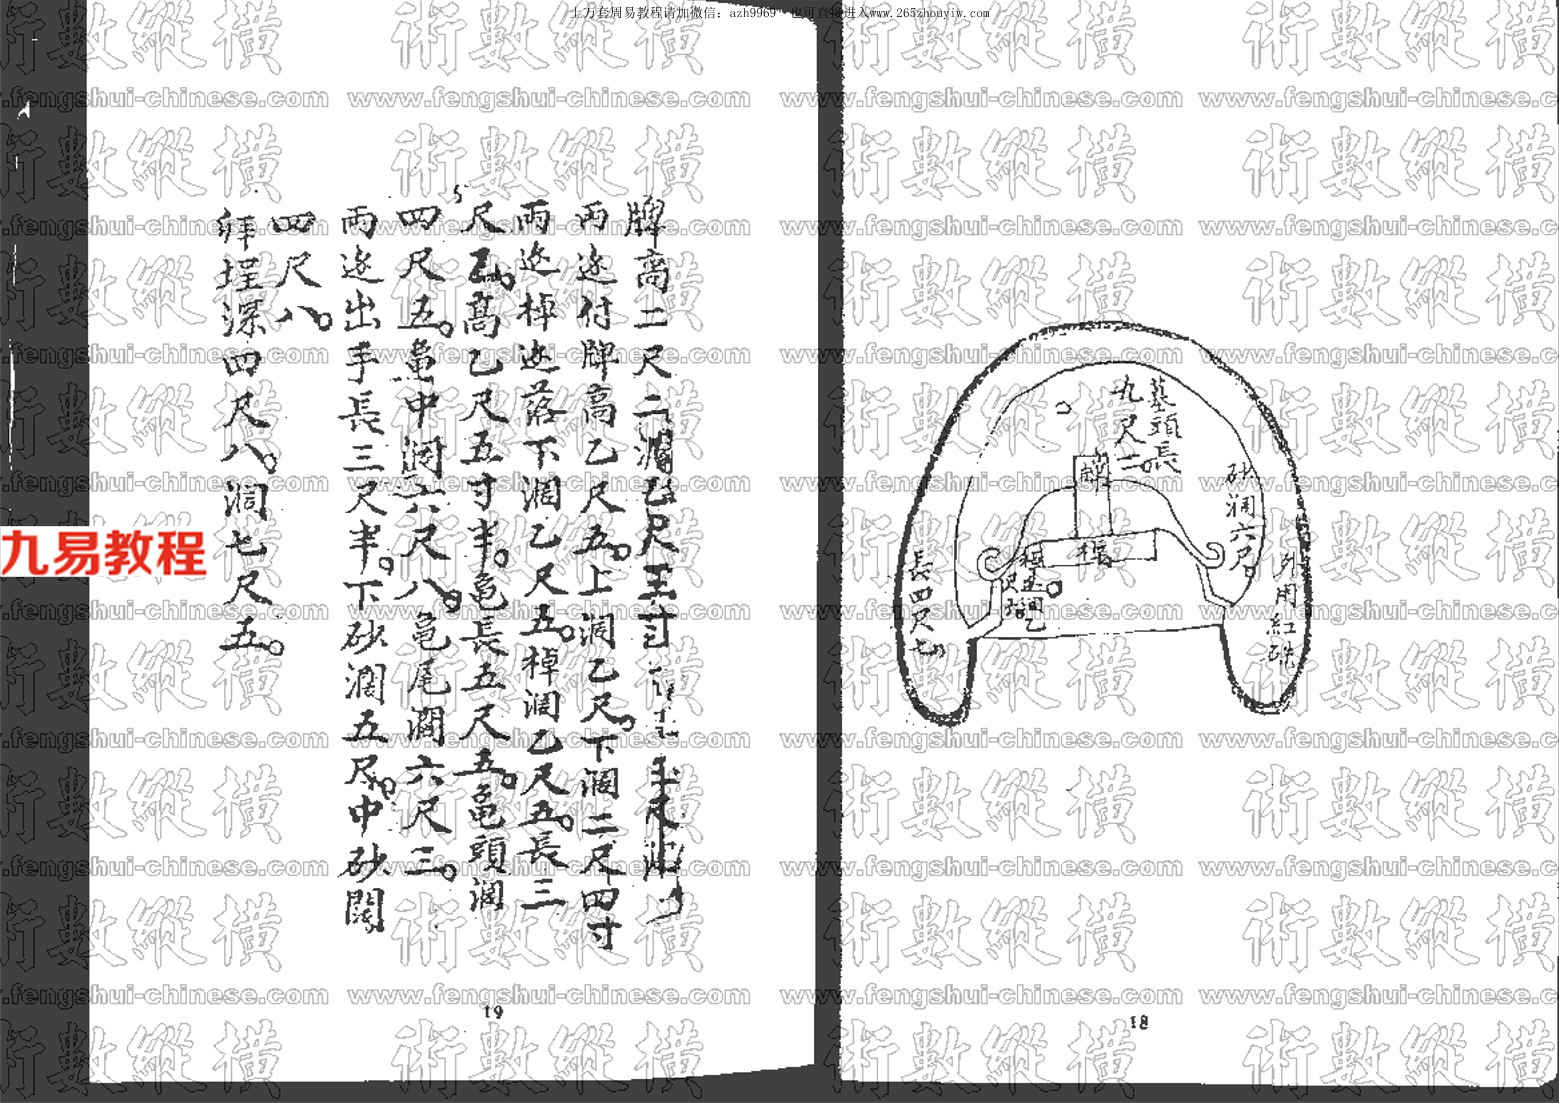 上万套周易教程请加微信：azh9969 也可直接进入www.265zhouyiw.com
術數縱橫
www.fengshui-chinese.com
九易教程
墓頭長
九尺二。
牌
棹
砂澗六尺。
外用紅
長四尺七
18
牌高二尺二澗乙尺五寸
兩迯付牌高乙尺五。上澗乙尺。下澗二尺四寸
兩迯棹迯落下澗乙尺五。棹澗乙尺五。長三
尺乙。高乙尺五寸半。龟長五尺五。龟頭澗
四尺五。龟中澗六尺八。龟尾澗六尺三。
兩迯出手長三尺半。下砂澗五尺。中砂闊
四尺八。
拜埕深四尺八。澗七尺五。
19